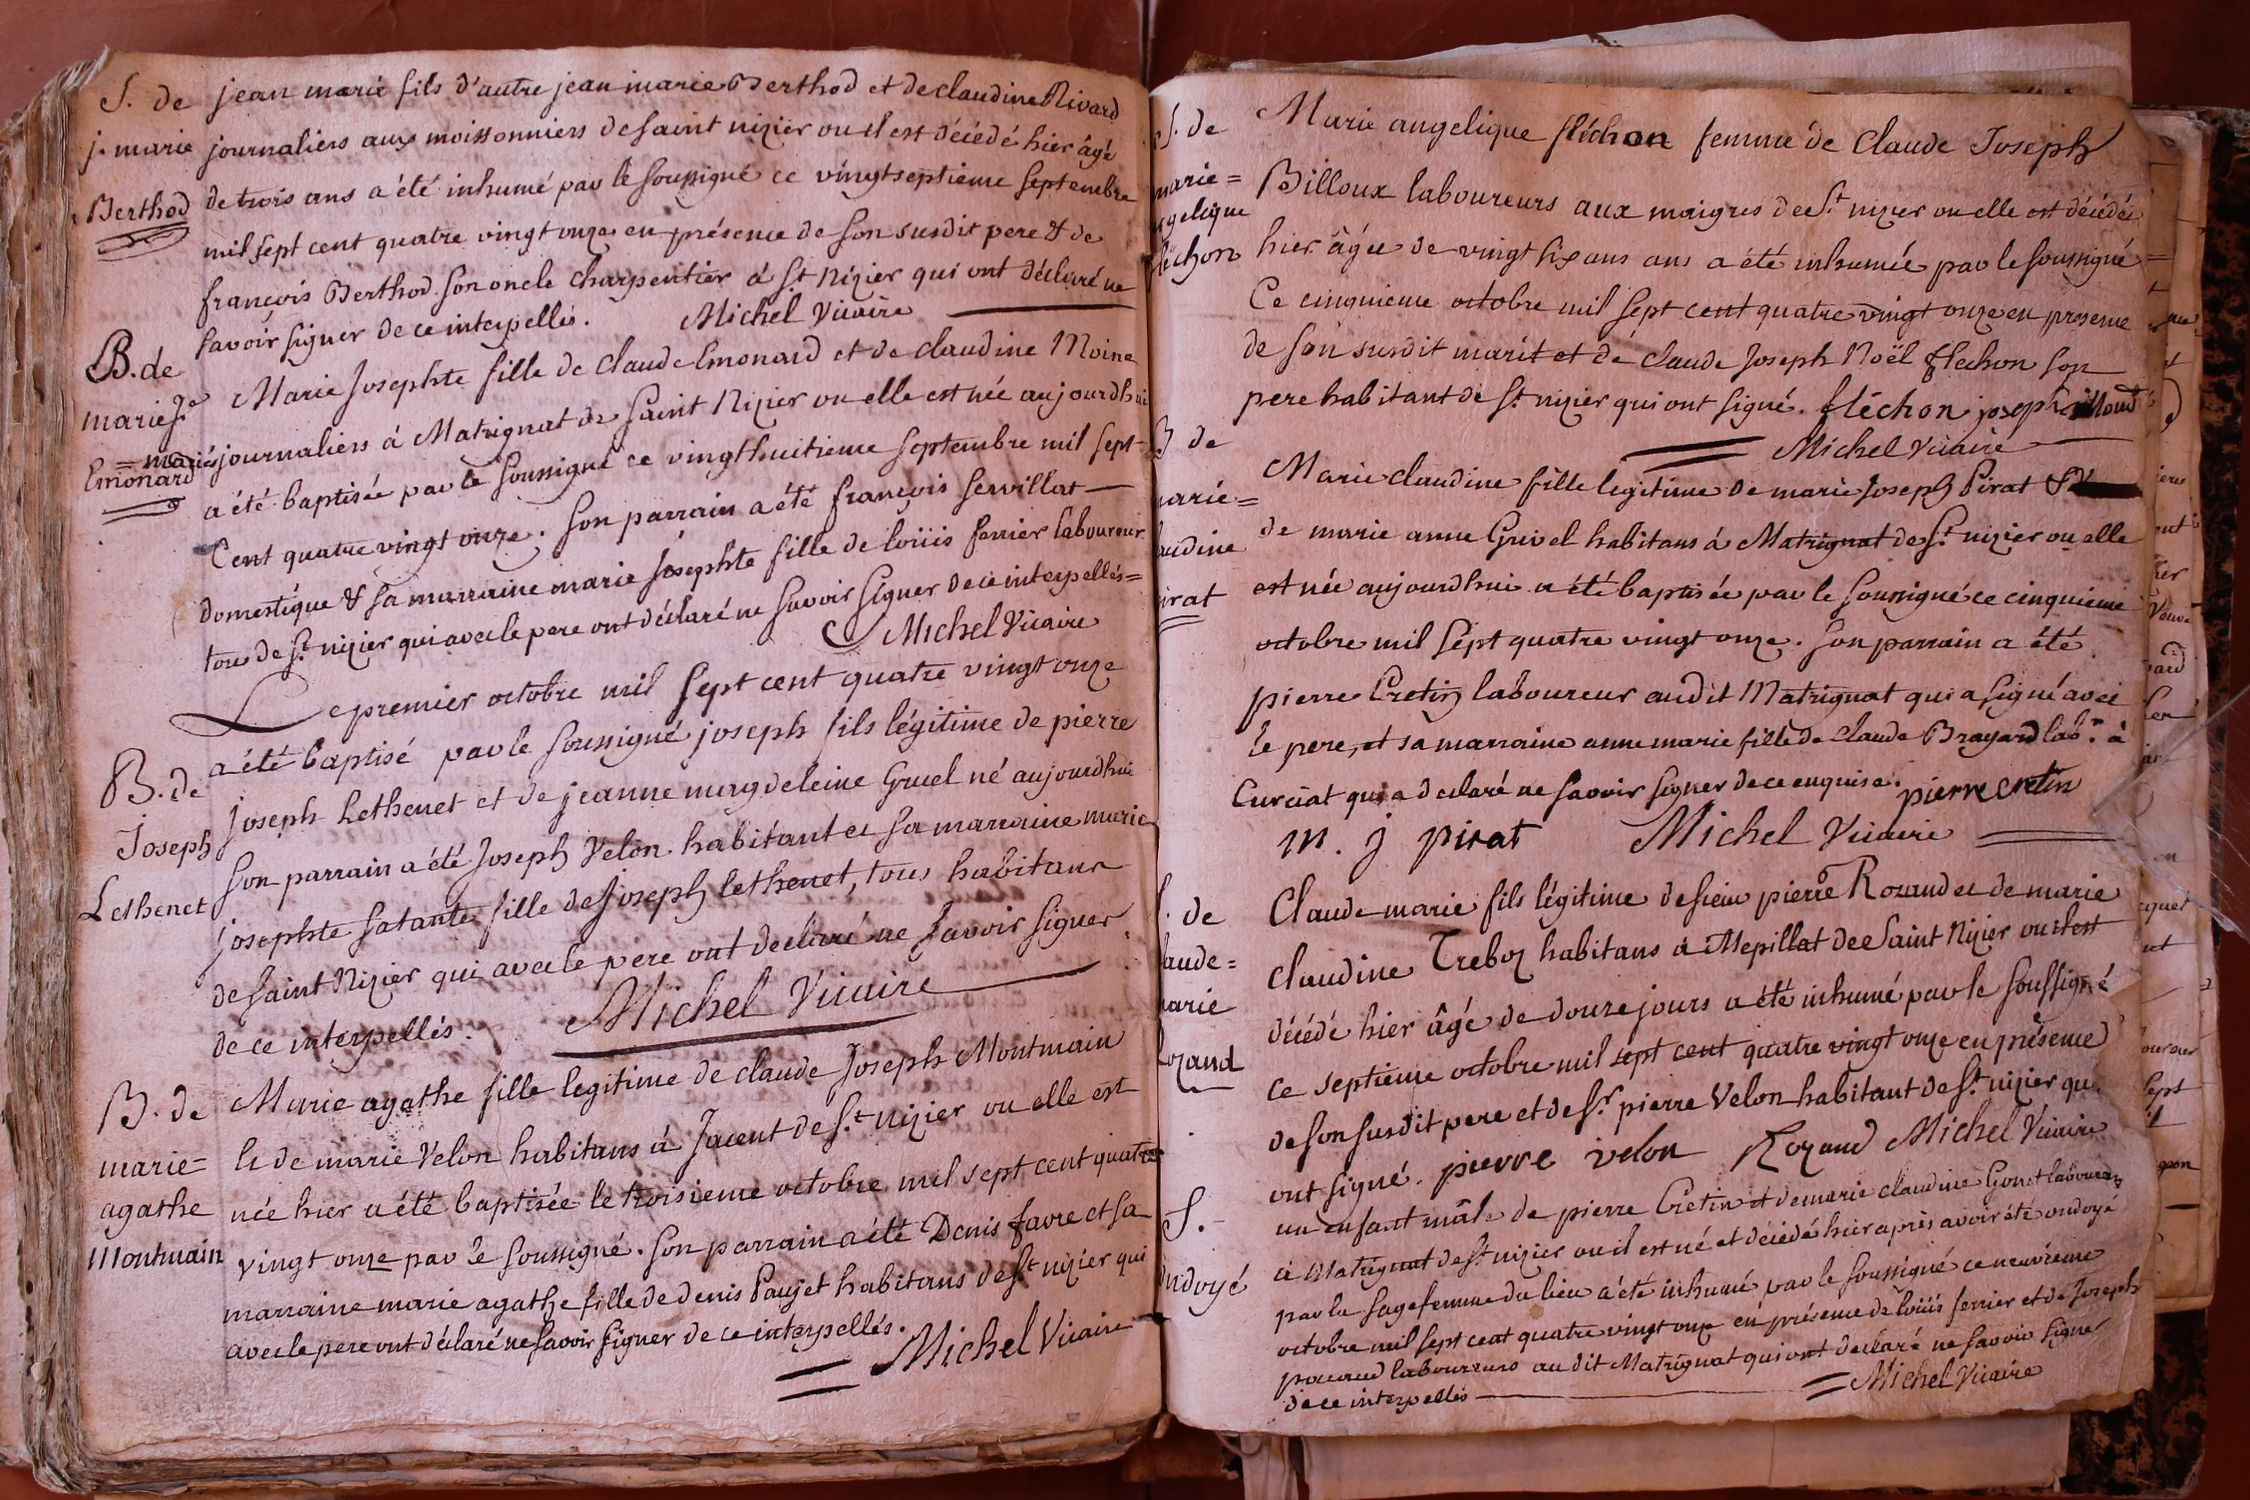 S. de
j. marie
Berthod
jean marie fils d'autre jean marie Berthod et de claudine Rivard
journaliers aux moissonniers de saint nizier ou il est décédé hier âgé
de trois ans a été inhumé par le soussigné ce vingt septieme septembre
mil sept cent quatre vingt onze en présence de son susdit pere & de
françois Berthod son oncle charpentier à st Nizier qui ont déclaré ne
savoir signer de ce interpellés. Michel Vicaire
B. de
marie Je
Emonard
Marie Josephte fille de claude Emonard et de claudine Moine
= mariés journaliers à Matrignat de saint Nizier ou elle est née aujourdhui
a été baptisée par le soussigné ce vingthuitieme septembre mil sept
Cent quatre vingt onze. son parrain a été françois servillat
domestique & sa marraine marie josephte fille de loüis ferrier laboureur
tous de st nizier qui avec le pere ont déclaré ne savoir signer de ce interpellés =
Michel Vicaire
B. de
Joseph
Lethenet
Le premier octobre mil sept cent quatre vingt onze
a été baptisé par le soussigné joseph fils légitime de pierre
joseph Lethenet et de jeanne magdeleine Gruel né aujourdhui
son parrain a été Joseph Velon habitant et sa marraine marie
josephte sa tante fille de Joseph lethenet, tous habitans
de saint Nizier qui avec le pere ont declaré ne savoir signer
de ce interpellés. Michel Vicaire
B. de
marie =
agathe
Montmain
Marie agathe fille legitime de claude Joseph Montmain
& de marie Velon habitans à Jacent de st nizier ou elle est
née hier a été baptisée le troisieme octobre mil sept cent quatre
vingt onze par le soussigné. son parrain a été Denis favre et sa
marraine marie agathe fille de denis Paujet habitans de st nizier qui
avec le pere ont déclaré ne savoir signer de ce interpellés.
= Michel Vicaire
S. de
marie =
angelique
fléchon
Marie angelique fléchon femme de Claude Joseph
Billoux laboureurs aux maigres de st nizier ou elle est décédée
hier âgée de vingt six ans ans a été inhumée par le soussigné =
Ce cinquieme octobre mil sept cent quatre vingt onze en presence
de son susdit marit et de claude Joseph Noël flechon son
pere habitant de st nizier qui ont signé. fléchon joseph
= Michel Vicaire
B de
marie =
claudine
Pirat
Marie claudine fille legitime de marie Joseph Pirat &
de marie anne Grivel habitans à Matrignat de st nizier ou elle
est née aujourdhui a été baptisée par le soussigné ce cinquieme
octobre mil sept quatre vingt onze. son parrain a été
pierre Cretin laboureur audit Matrignat qui a signé avec
le pere, et sa marraine anne marie fille de claude Brayard labr. à
Curciat qui a declaré ne savoir signer de ce enquise. pierre cretin
m. j pirat Michel Vicaire
S. de
claude =
marie
Rozand
Claude marie fils légitime de sieur pierre Rozand et de marie
claudine Treboz habitans à Mepillat de Saint Nizier ou il est
décédé hier âgé de douze jours a été inhumé par le soussigné
ce septieme octobre mil sept cent quatre vingt onze en présence
de son susdit pere et de sr pierre Velon habitant de st nizier qui
ont signé. pierre velon Rozand Michel Vicaire
S. -
ondoyé
un enfant mâle de pierre Cretin et de marie claudine Gonet laboureurs
à Matrignat de st nizier ou il est né et décédé hier après avoir été ondoyé
par la sagefemme du lieu a été inhumé par le soussigné ce neuvieme
octobre mil sept cent quatre vingt onze en présence de loüis ferrier et de Joseph
laboureurs au dit Matrignat qui ont declaré ne savoir signer
de ce interpellés = Michel Vicaire